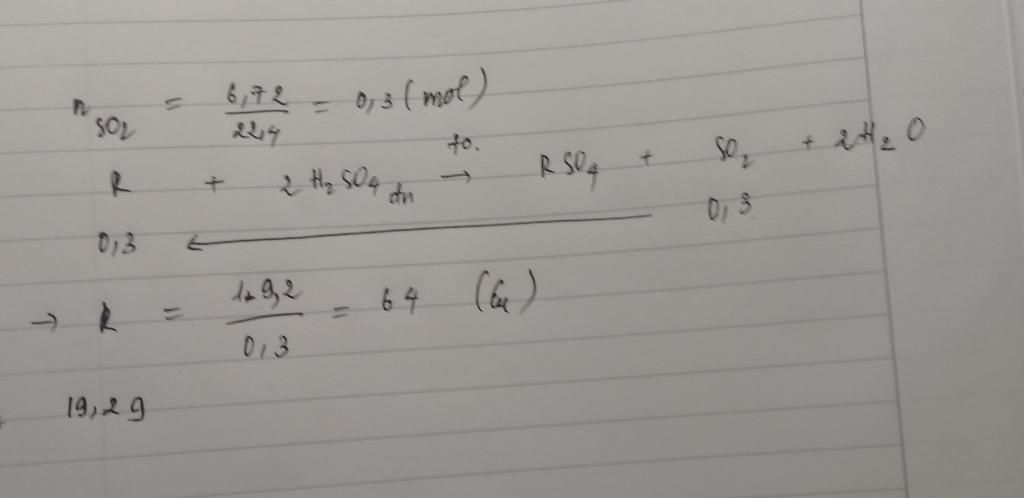 n SO2 = 6,72 / 22,4 = 0,3 (mol)
R + 2 H2SO4 đn → to. RSO4 + SO2 + 2H2O
0,3 ← 0,3
→ R = 19,2 / 0,3 = 64 (Cu)
19,2g